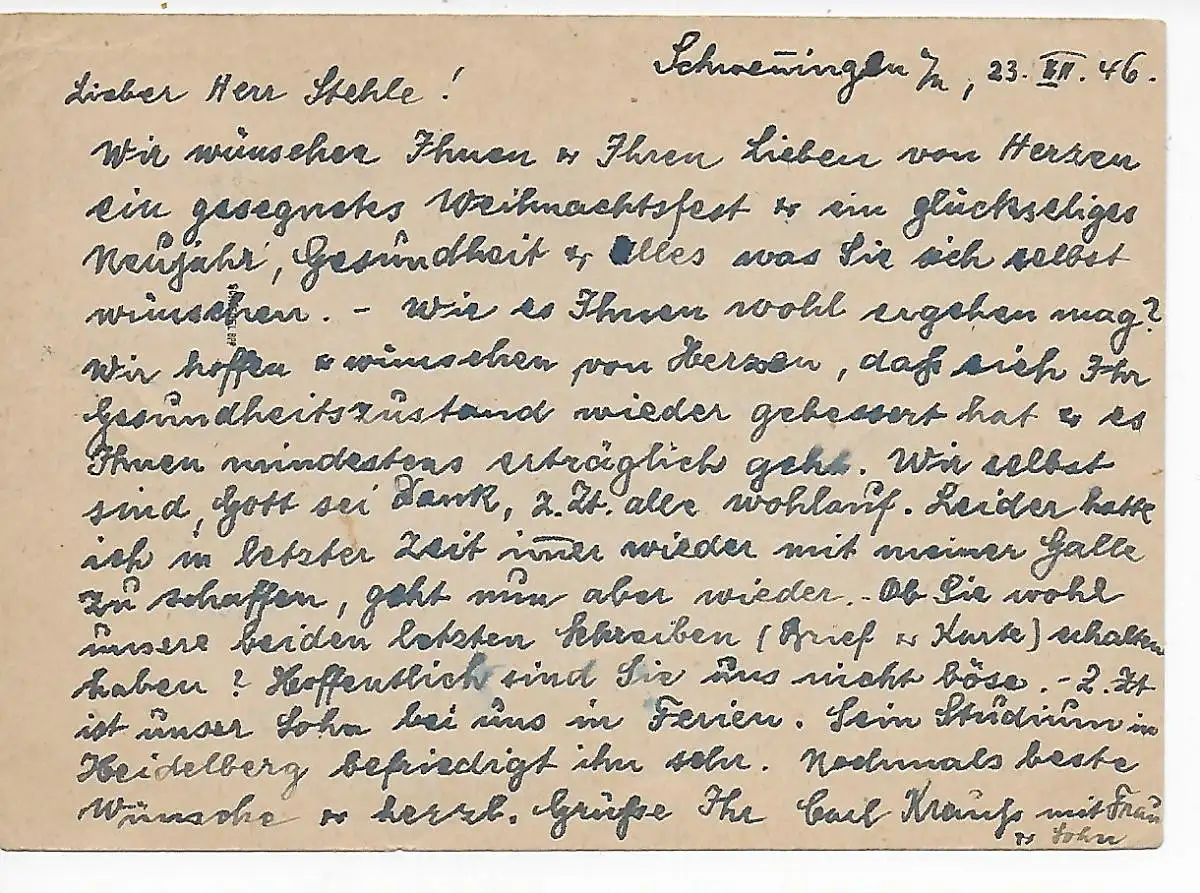 Schwenningen a/N, 23. XII. 46.
Lieber Herr Stehle!
Wir wünschen Ihnen & Ihren Lieben von Herzen
ein gesegnetes Weihnachtsfest & ein glückseliges
Neujahr, Gesundheit & Alles was Sie sich selbst
wünschen. – Wie es Ihnen wohl ergehen mag?
Wir hoffen & wünschen von Herzen, daß sich Ihr
Gesundheitszustand wieder gebessert hat & es
Ihnen mindestens erträglich geht. Wir selbst
sind, Gott sei Dank, z. Zt. alle wohlauf. Leider hatte
ich in letzter Zeit immer wieder mit meiner Galle
zu schaffen, geht nun aber wieder. – Ob Sie wohl
unsere beiden letzten Schreiben (Brief & Karte) erhalten
haben? Hoffentlich sind Sie uns nicht böse. – Z. Zt
ist unser Sohn bei uns in Ferien. Sein Studium in
Heidelberg befriedigt ihn sehr. Nochmals beste
Wünsche & herzl. Grüße Ihr Carl Krauß mit Frau
& Sohn